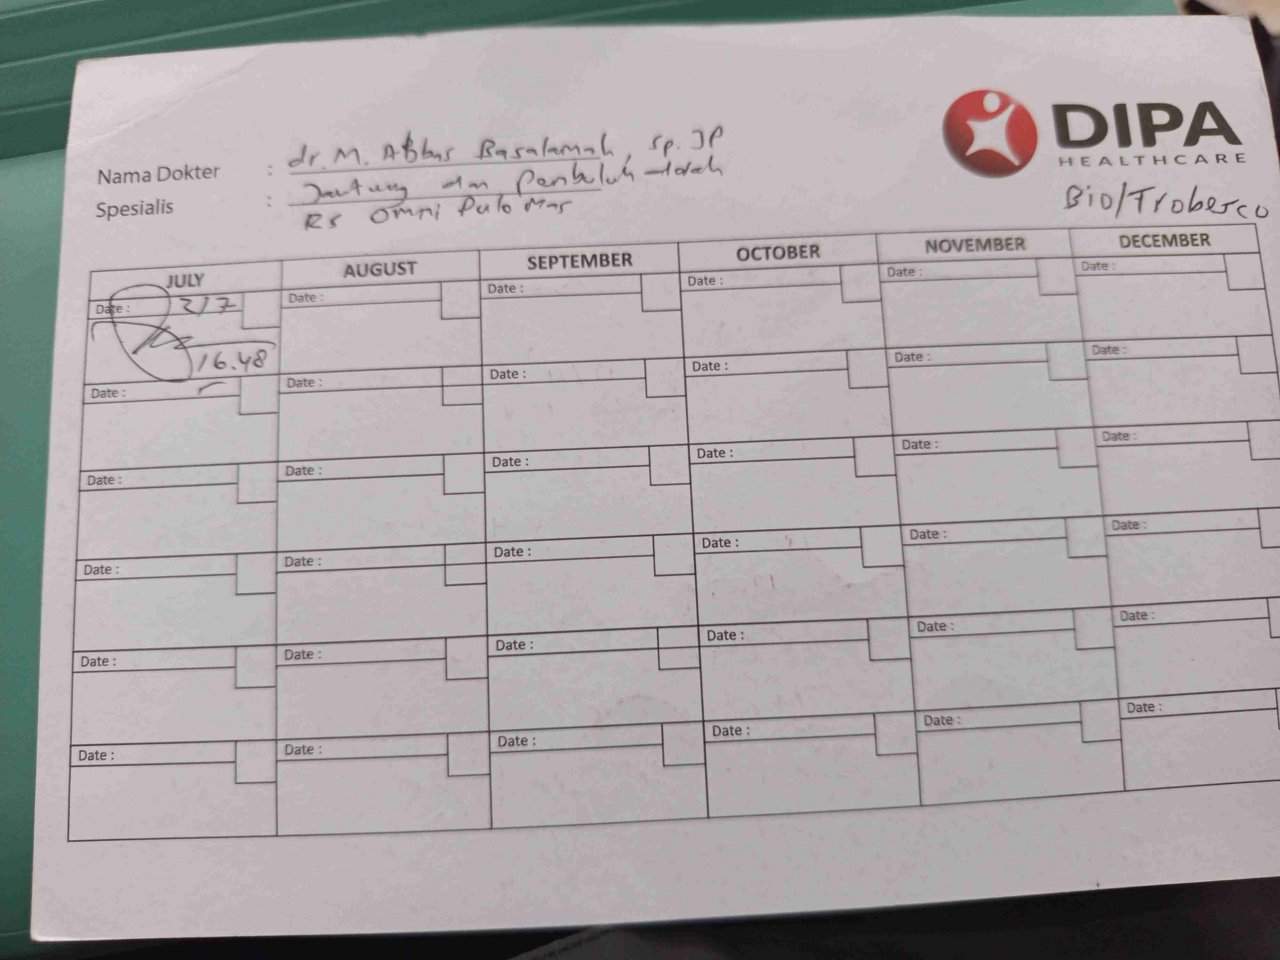 DIPA
HEALTHCARE
Nama Dokter : dr. M. Abbas Basalamah, Sp. JP
Spesialis : Jantung dan Pembuluh darah
RS Omni Pulo Mas
Bio/Troberco
JULY AUGUST SEPTEMBER OCTOBER NOVEMBER DECEMBER
Date : 2/7 Date : Date : Date : Date : Date :
16.48
Date : Date : Date : Date : Date : Date :
Date : Date : Date : Date : Date : Date :
Date : Date : Date : Date : Date : Date :
Date : Date : Date : Date : Date : Date :
Date : Date : Date : Date : Date : Date :